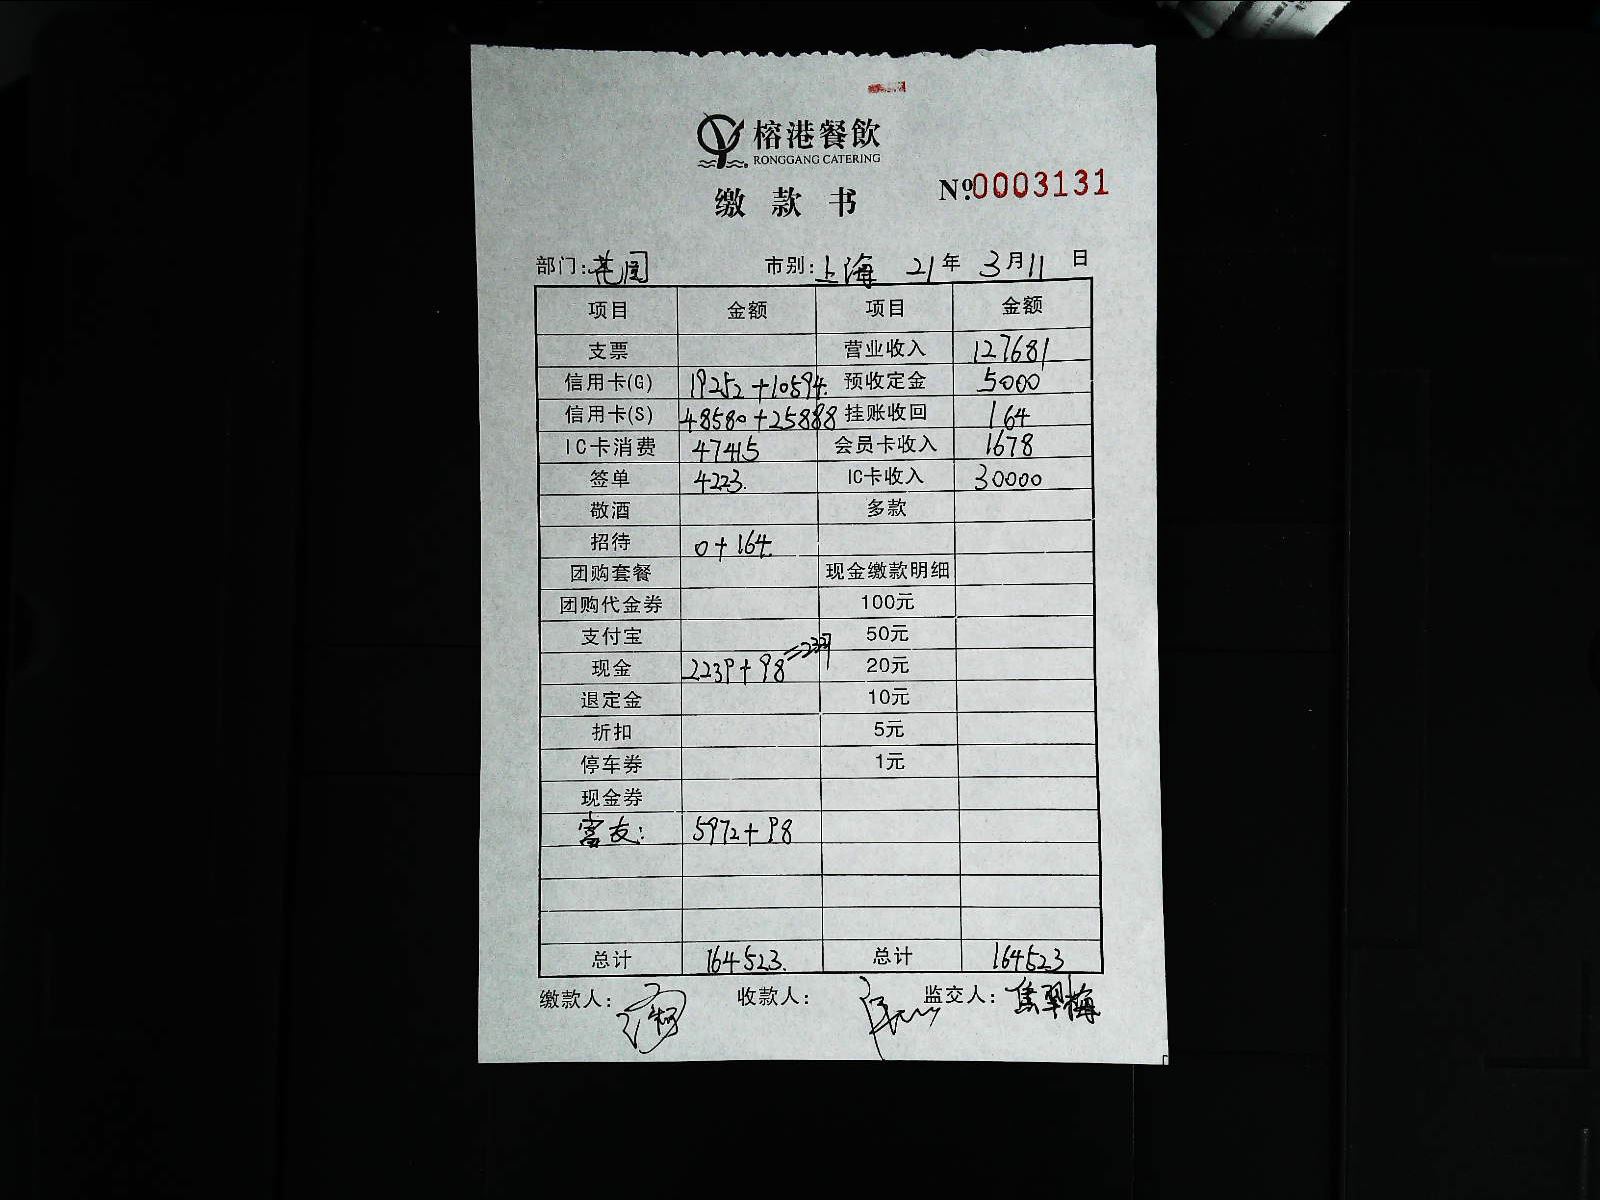 榕港餐飲
RONGGANG CATERING
缴款书
Nº.0003131
部门:花园 市别:上海 21年 3月11日
项目 金额 项目 金额
支票 营业收入 127681
信用卡(G) 19252+10594. 预收定金 5000
信用卡(S) 48580+25888 挂账收回 164
IC卡消费 47415 会员卡收入 1678
签单 4223. IC卡收入 30000
敬酒 多款
招待 0+164.
团购套餐 现金缴款明细
团购代金券 100元
支付宝 50元
现金 2239+98=2337 20元
退定金 10元
折扣 5元
停车券 1元
现金券
富友: 5972+98
总计 164523. 总计 164523
缴款人: 收款人: 监交人:焦翠梅